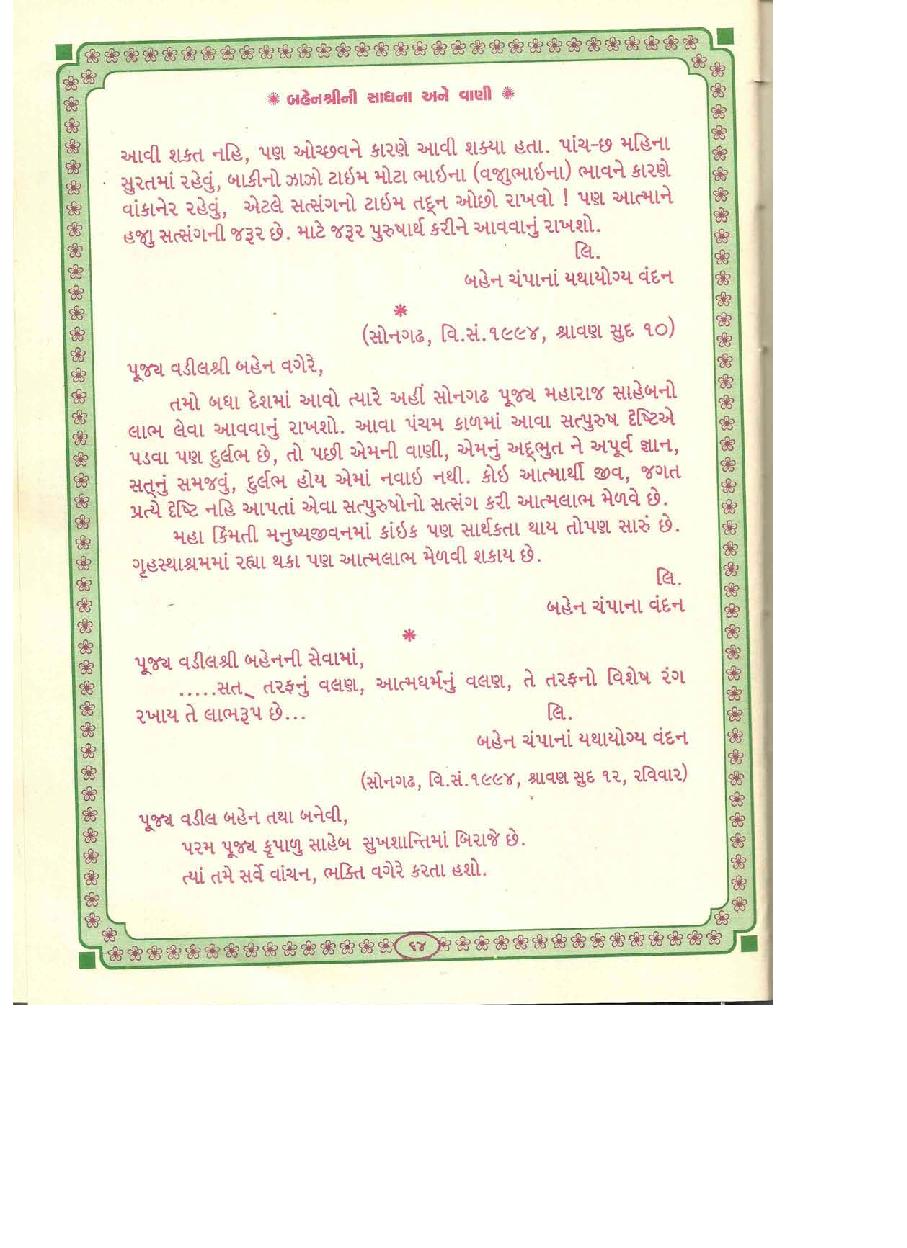 ❋ બહેનશ્રીની સાધના અને વાણી ❋
આવી શકત નહિ, પણ ઓચ્છવને કારણે આવી શક્યા હતા. પાંચ-છ મહિના
સુરતમાં રહેવું, બાકીનો ઝાઝો ટાઇમ મોટા ભાઇના (વજુભાઇના) ભાવને કારણે
વાંકાનેર રહેવું, એટલે સત્સંગનો ટાઇમ તદ્દન ઓછો રાખવો ! પણ આત્માને
હજુ સત્સંગની જરૂર છે. માટે જરૂર પુરુષાર્થ કરીને આવવાનું રાખશો.
લિ.
બહેન ચંપાનાં યથાયોગ્ય વંદન
❋
(સોનગઢ, વિ.સં.૧૯૯૪, શ્રાવણ સુદ ૧૦)
પૂજ્ય વડીલશ્રી બહેન વગેરે,
તમો બધા દેશમાં આવો ત્યારે અહીં સોનગઢ પૂજ્ય મહારાજ સાહેબનો
લાભ લેવા આવવાનું રાખશો. આવા પંચમ કાળમાં આવા સત્પુરુષ દૃષ્ટિએ
પડવા પણ દુર્લભ છે, તો પછી એમની વાણી, એમનું અદ્ભુત ને અપૂર્વ જ્ઞાન,
સત્‌નું સમજવું, દુર્લભ હોય એમાં નવાઇ નથી. કોઇ આત્માર્થી જીવ, જગત
પ્રત્યે દૃષ્ટિ નહિ આપતાં એવા સત્પુરુષોનો સત્સંગ કરી આત્મલાભ મેળવે છે.
મહા કિંમતી મનુષ્યજીવનમાં કાંઇક પણ સાર્થકતા થાય તોપણ સારું છે.
ગૃહસ્થાશ્રમમાં રહ્યા થકા પણ આત્મલાભ મેળવી શકાય છે.
લિ.
બહેન ચંપાના વંદન
❋
પૂજ્ય વડીલશ્રી બહેનની સેવામાં,
.....સત્ તરફનું વલણ, આત્મધર્મનું વલણ, તે તરફનો વિશેષ રંગ
રખાય તે લાભરૂપ છે... લિ.
બહેન ચંપાનાં યથાયોગ્ય વંદન
(સોનગઢ, વિ.સં.૧૯૯૪, શ્રાવણ સુદ ૧૨, રવિવાર)
પૂજ્ય વડીલ બહેન તથા બનેવી,
પરમ પૂજ્ય કૃપાળુ સાહેબ સુખશાન્તિમાં બિરાજે છે.
ત્યાં તમે સર્વે વાંચન, ભક્તિ વગેરે કરતા હશો.
૬૪